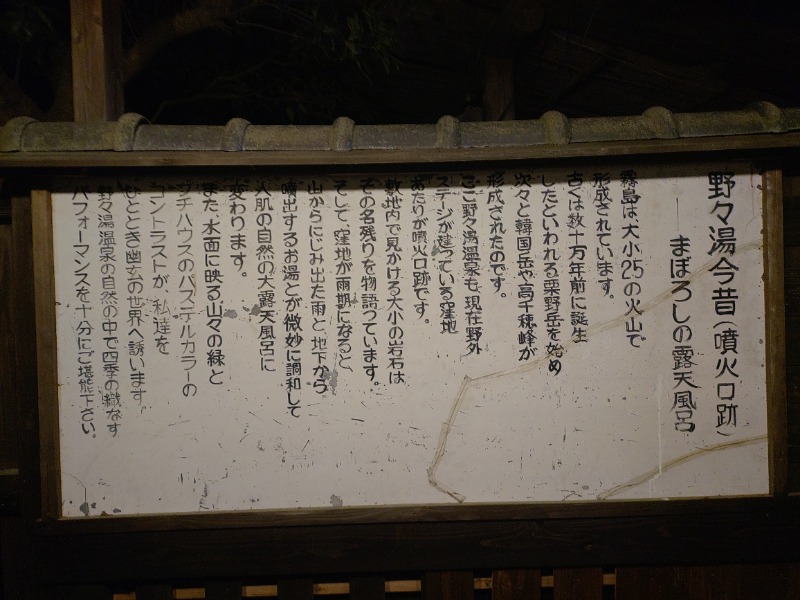 野々湯今昔(噴火口跡)
―まぼろしの露天風呂
霧島は大小25の火山で
形成されています。
古くは数十万年前に誕生
したといわれる栗野岳を始め
次々と韓国岳や高千穂峰が
形成されたのです。
ここ野々湯温泉も、現在野外
ステージが建っている窪地
あたりが噴火口跡です。
敷地内で見かける大小の岩石は
その名残りを物語っています。
そして、窪地が雨期になると、
山からにじみ出た雨と、地下から
噴出するお湯とが微妙に調和して
人肌の自然の大露天風呂に
変わります。
また、水面に映る山々の緑と
プチハウスのパステルカラーの
コントラストが、私達を
ひととき幽玄の世界へ誘います。
野々湯温泉の自然の中で四季の織なす
パフォーマンスを十分にご堪能下さい。